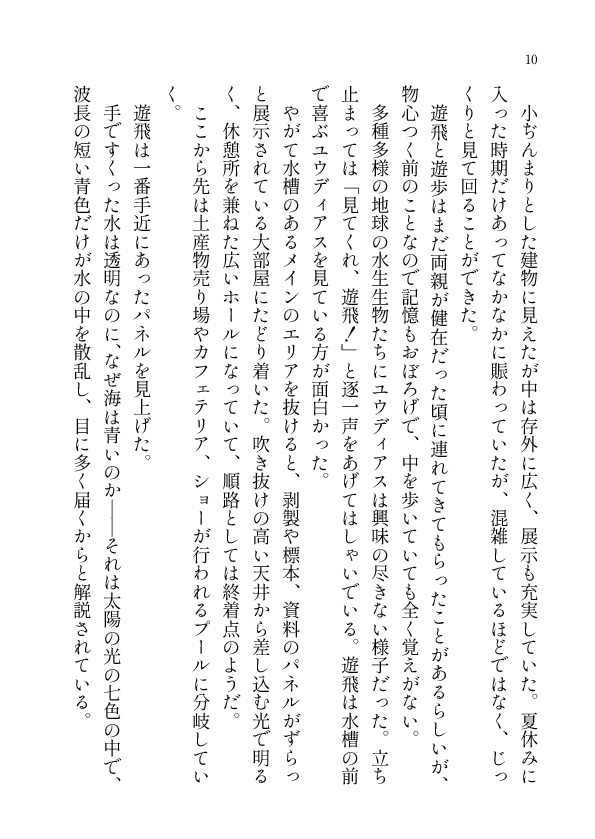 10
小ぢんまりとした建物に見えたが中は存外に広く、展示も充実していた。夏休みに
入った時期だけあってなかなかに賑わっていたが、混雑しているほどではなく、じっ
くりと見て回ることができた。
遊飛と遊歩はまだ両親が健在だった頃に連れてきてもらったことがあるらしいが、
物心つく前のことなので記憶もおぼろげで、中を歩いていても全く覚えがない。
多種多様の地球の水生生物たちにユウディアスは興味の尽きない様子だった。立ち
止まっては「見てくれ、遊飛！」と逐一声をあげてはしゃいでいる。遊飛は水槽の前
で喜ぶユウディアスを見ている方が面白かった。
やがて水槽のあるメインのエリアを抜けると、剥製や標本、資料のパネルがずらっ
と展示されている大部屋にたどり着いた。吹き抜けの高い天井から差し込む光で明る
く、休憩所を兼ねた広いホールになっていて、順路としては終着点のようだ。
ここから先は土産物売り場やカフェテリア、ショーが行われるプールに分岐してい
く。
遊飛は一番手近にあったパネルを見上げた。
手ですくった水は透明なのに、なぜ海は青いのか――それは太陽の光の七色の中で、
波長の短い青色だけが水の中を散乱し、目に多く届くからと解説されている。